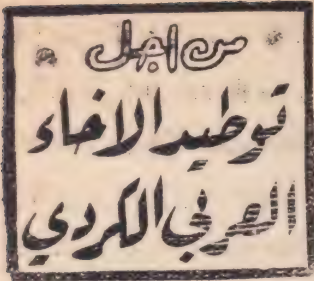 من اجل
توطيد الاخاء
العربي الكردي